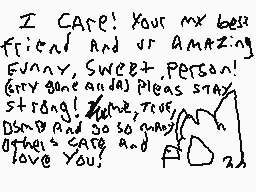 I CARe! Your my best
friend And ur AMAzing
Funny, Sweet, Person!
(srry gone andA) Pleas STAY
strong! me, True,
DSMP And so so many
others CARe And
love You!